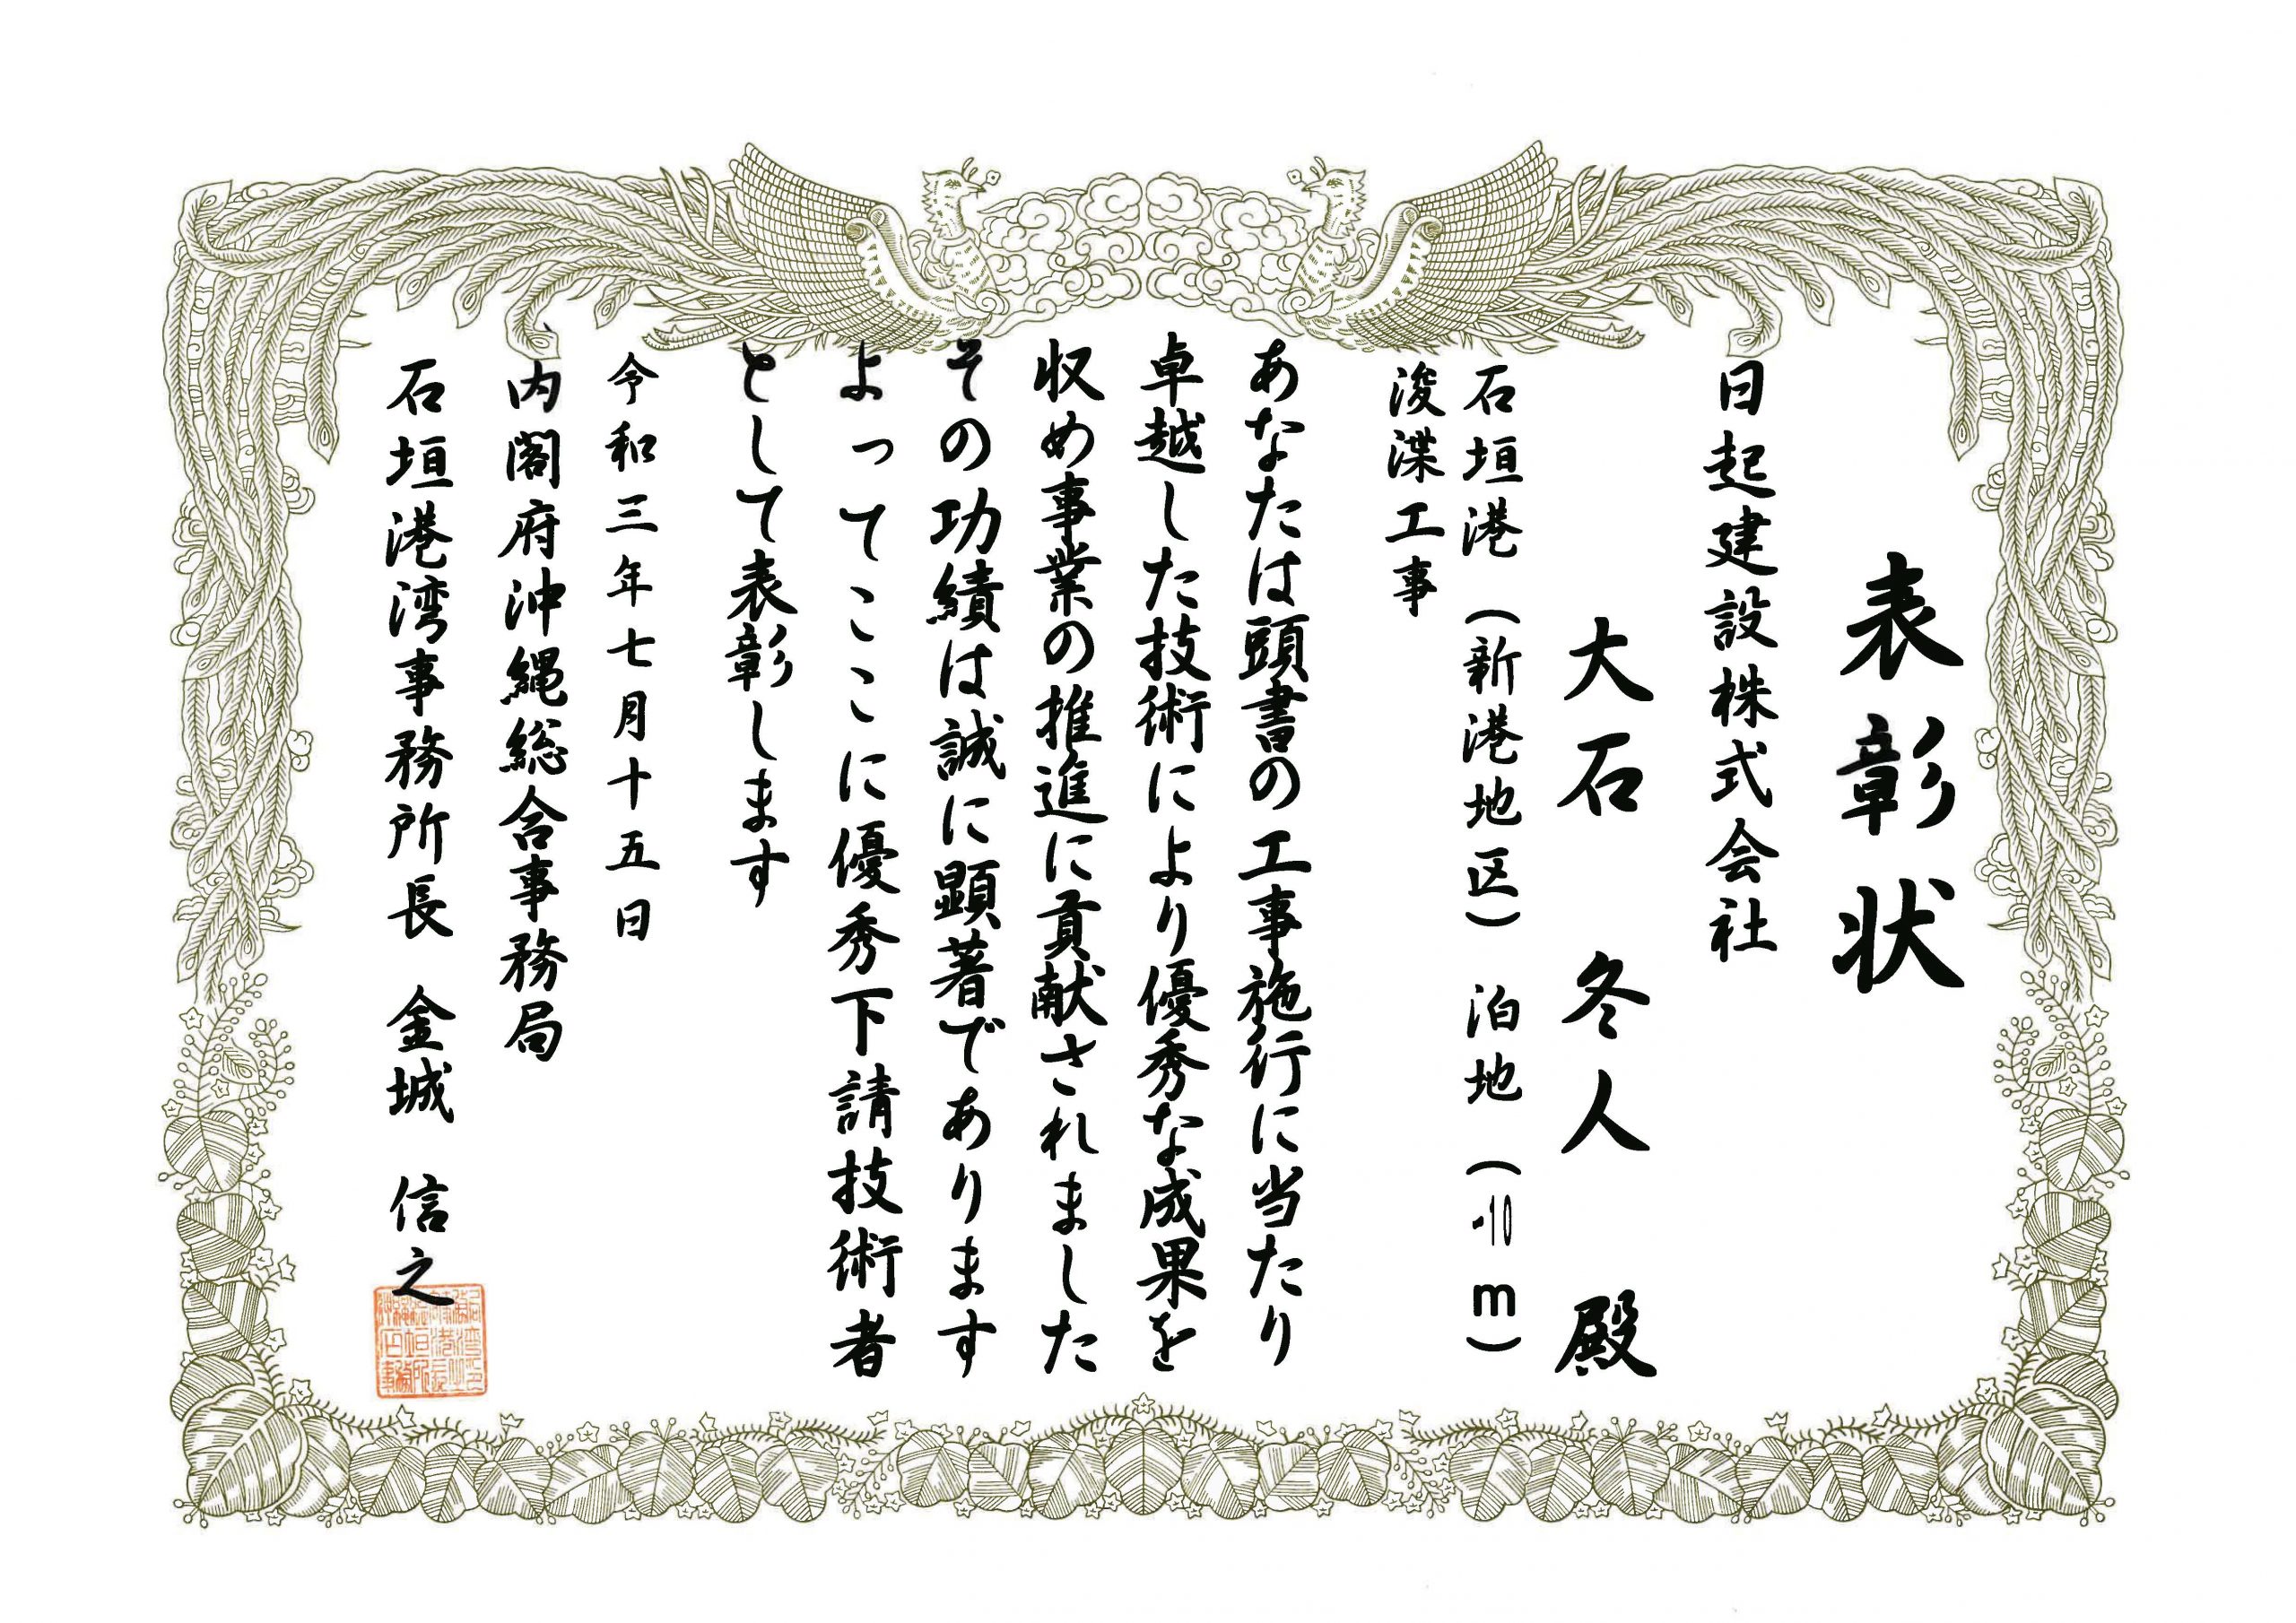 表彰状
日起建設株式会社
大石 冬人 殿
石垣港（新港地区）泊地（-10m）
浚渫工事
あなたは頭書の工事施行に当たり
卓越した技術により優秀な成果を
収め事業の推進に貢献されました
その功績は誠に顕著であります
よってここに優秀下請技術者
として表彰します
令和三年七月十五日
内閣府沖縄総合事務局
石垣港湾事務所長 金城 信之